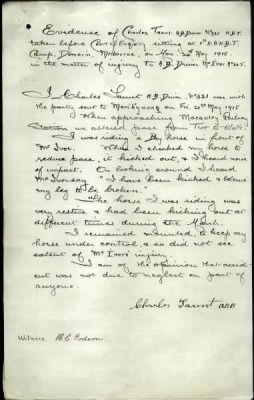 Evidence of Charles Faunt A.B. Driver No 321 H.D.T.
taken before Court of Enquiry sitting at 1st R.A.N.B.T.
Camp, Domain, Melbourne, on Mon 24th May 1915
in the matter of injury to A.B. Driver McIvor No 205.
I Charles Faunt A.B. Driver No 321 was with
the party sent to Maribyrnong on Fri 21st May 1915
When approaching Macauley Railway
Station, we altered pace from Trot to Walk.
I was riding a By horse in front of
McIvor. When I checked my horse to
reduce pace, it kicked out, & I heard noise
of impact. On looking around I heard
McIvor say "I have been kicked & believe
my leg to be broken."
The horse I was riding was
very restive & had been kicking out at
different times during the March.
I remained mounted, to keep my
horse under control, & so did not see
extent of McIvor's injury.
I am of the opinion that accid-
ent was not due to neglect on part of
anyone.
Charles Faunt ABD
Witness